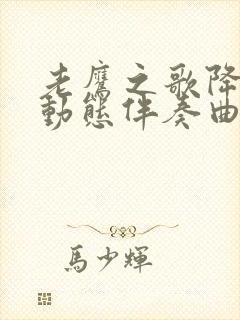 老鷹之歌降
動態伴奏曲
馬少輝